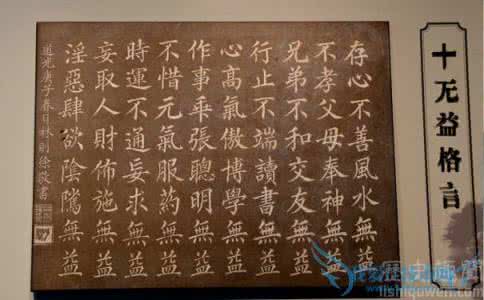 十无益格言
存心不善風水無益
不孝父母奉神無益
兄弟不和交友無益
行止不端讀書無益
心髙氣傲博學無益
作事乖張聰明無益
不惜元氣服藥無益
時運不通妄求無益
妄取人財佈施無益
淫惡肆欲陰騭無益
道光庚子春日林則徐敬書
lishiquwen.com